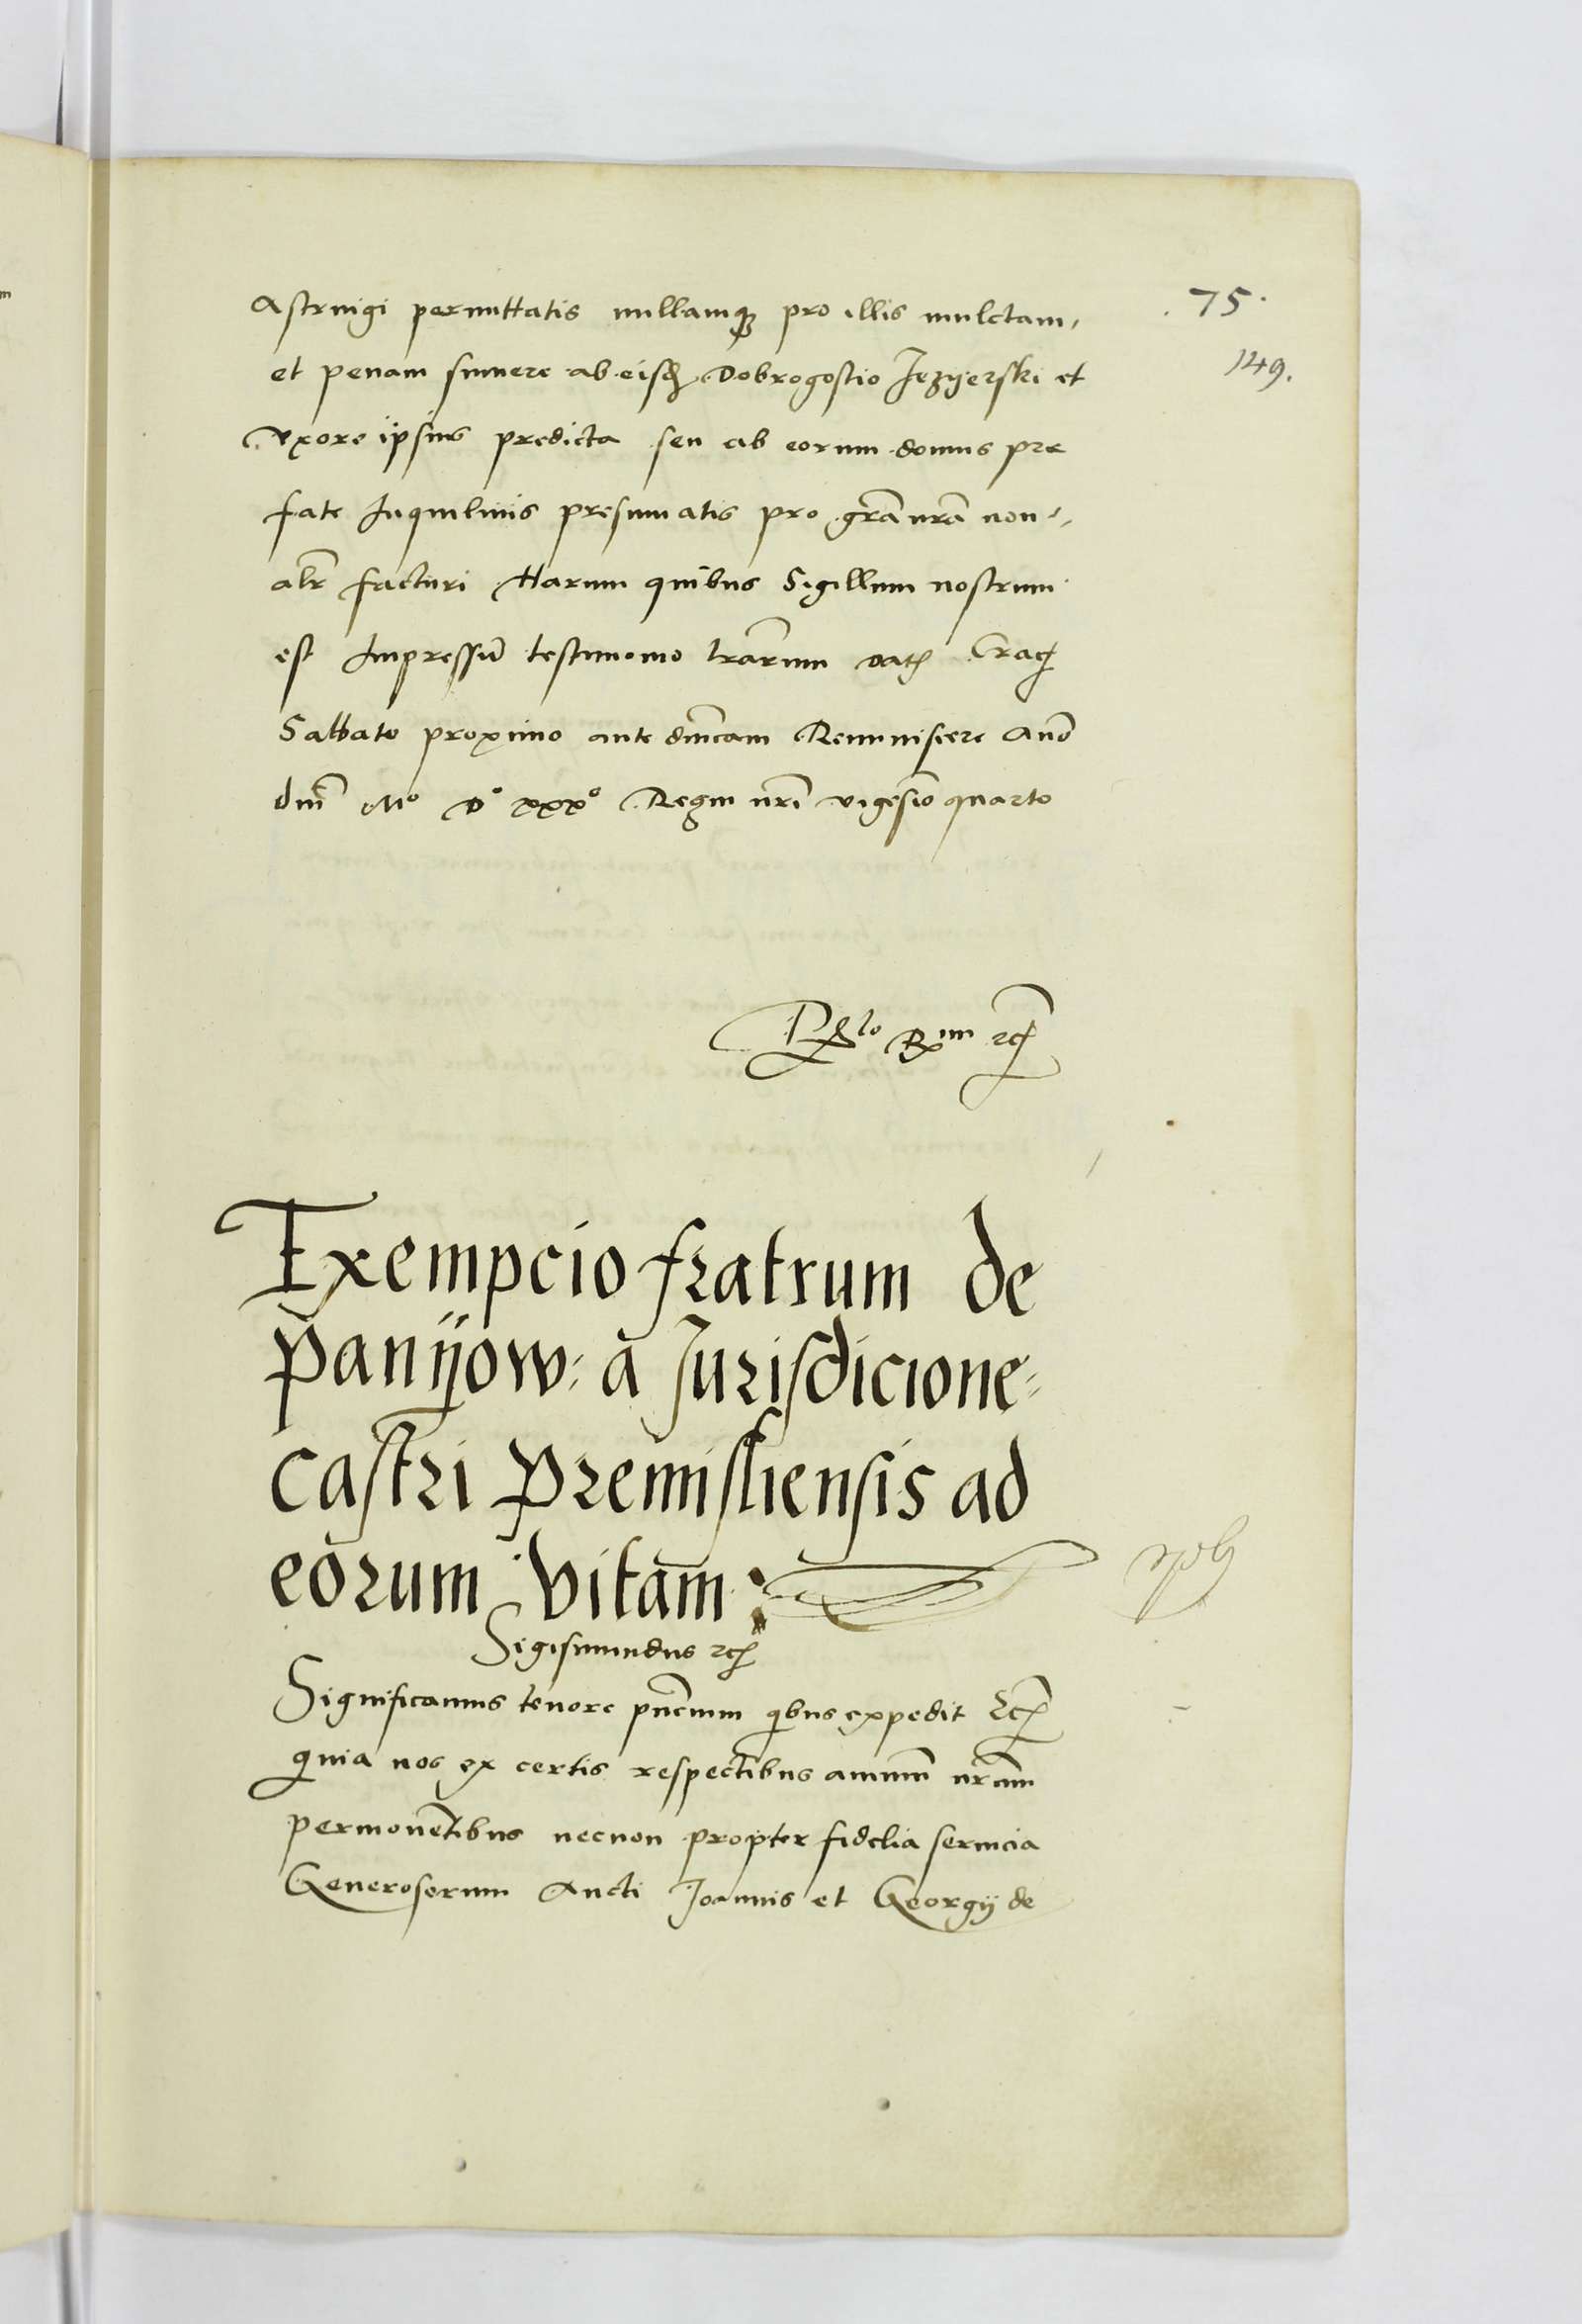 Astringi permittatis nullamque pro illis mulctam,
75.
et penam sumere ab eisd Dobrogostio Jezyerski et
149.
Uxore ipsius predicta seu ab eorum domus pre
fate Inquilinis presumatis pro gra nra non
alr facturi Harum quibus Sigillum nostrum
est Impressu testimonio lrarum Dat Crac
Sabbato proximo ante dnicam Reminiscere Anno
dni Mo Do xxxo Regni nri vigesio quarto
Exempcio fratrum de
panyow: a Jurisdicione
castri premisliensis ad
eorum vitam:
Sigismundus rc
Significamus tenore pncium quibus expedit rc
quia nos ex certis respectibus animum nrum
permoventibus necnon propter fidelia servicia
Generosorum Ancti Joannis et Georgij de